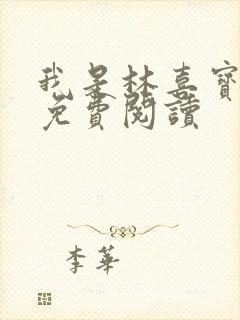 我是林喜寶
免費閱讀
李華